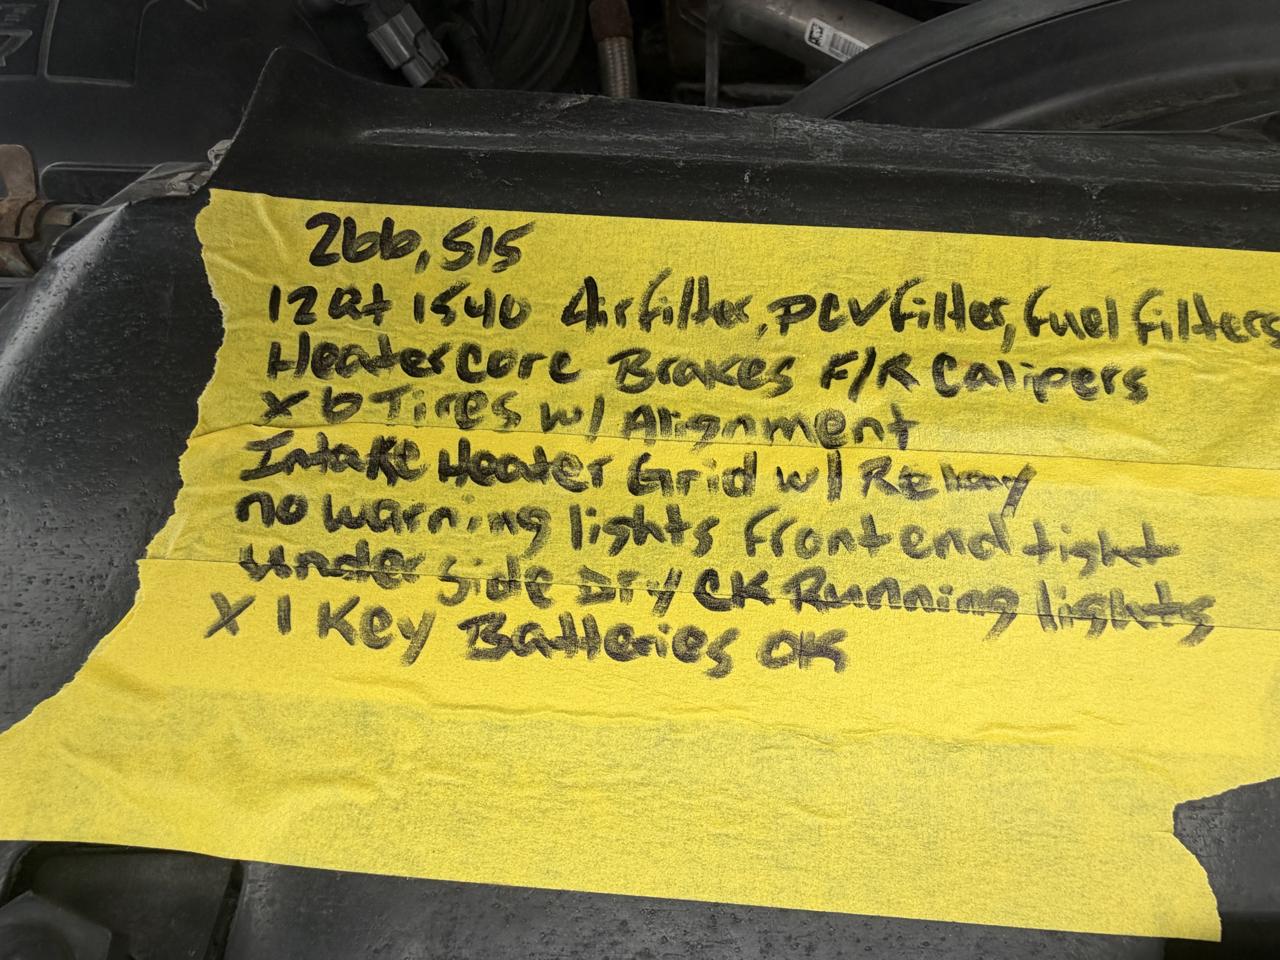 266,515
12qt 1540 Air filter, PCV filter, fuel filters
Heater core Brakes F/R Calipers
x 6 Tires w/ Alignment
Intake Heater Grid w/ Relay
no warning lights front end tight
under side Dry CK Running lights
x 1 Key Batteries OK